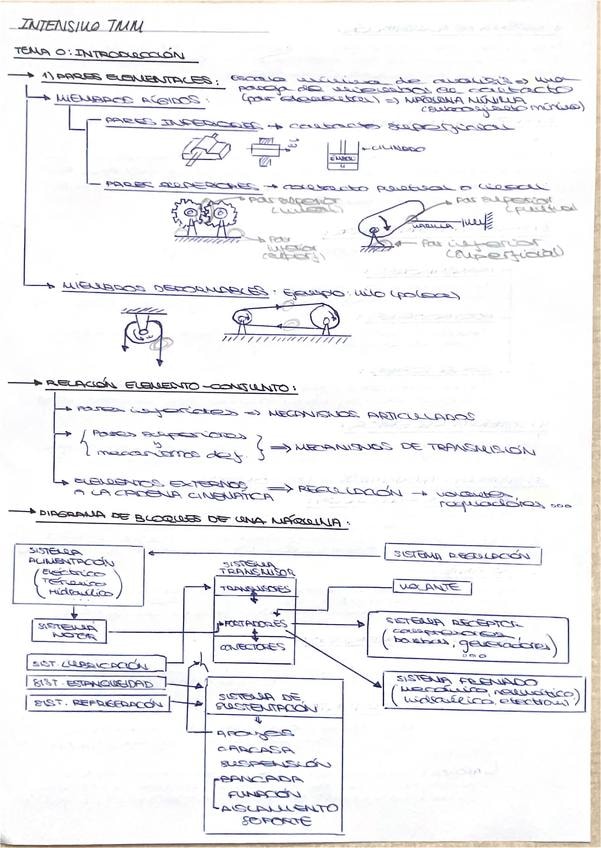 INTENSIVO TMM
TEMA 0: INTRODUCCIÓN
1) PARES ELEMENTALES: escala mínima de análisis => una
pareja de miembros en contacto
MIEMBROS RÍGIDOS: (par elemental) => MÁQUINA MÍNIMA
(subconjunto mínimo)
PARES INFERIORES → contacto superficial
CILINDRO
EMBOLO
PARES SUPERIORES → contacto puntual o lineal
Par superior
(lineal)
Par superior
(puntual)
Par
inferior
(superf)
Par inferior
(superficial)
MIEMBROS DEFORMABLES: ejemplo: hilo (polea)
RELACIÓN ELEMENTO-CONJUNTO:
Pares inferiores => MECANISMOS ARTICULADOS
Pares superiores
y
mecanismos def.
=> MECANISMOS DE TRANSMISIÓN
ELEMENTOS EXTERNOS
A LA CADENA CINEMÁTICA => REGULACIÓN → volantes,
reguladores, ...
DIAGRAMA DE BLOQUES DE UNA MÁQUINA:
SISTEMA
ALIMENTACIÓN
(Eléctrico
Térmico
Hidráulico)
SISTEMA REGULACIÓN
SISTEMA
TRANSMISOR
TRANSMISORES
VOLANTE
SISTEMA
MOTOR
PORTADORES
SISTEMA RECEPTOR
compresores
bombas, generadores
...
CONECTORES
SIST. LUBRICACIÓN
SIST. ESTANQUEIDAD
SIST. REFRIGERACIÓN
SISTEMA FRENADO
(mecánico, neumático,
hidráulico, electrom)
SISTEMA DE
SUSTENTACIÓN
APOYOS
CARCASA
SUSPENSIÓN
BANCADA
FUNCIÓN
AISLAMIENTO
SOPORTE